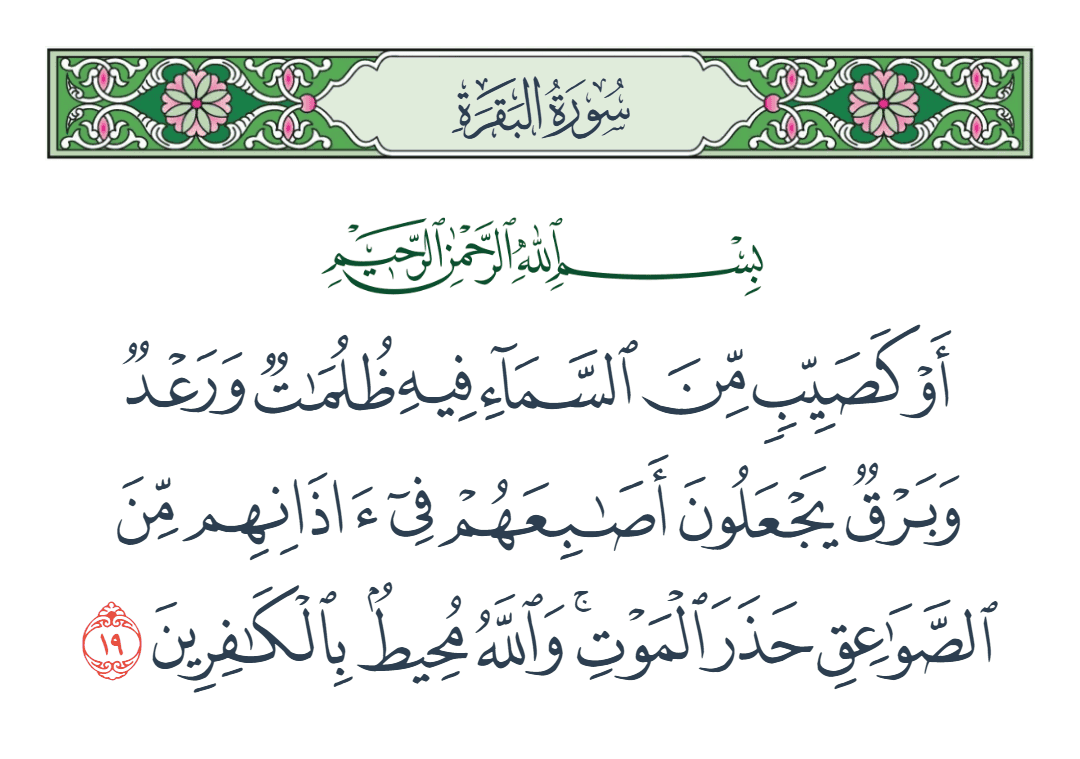 سُورَةُ البَقَرَةِ
بِسْمِ ٱللَّهِ ٱلرَّحْمَٰنِ ٱلرَّحِيمِ
أَوْ كَصَيِّبٍ مِّنَ ٱلسَّمَآءِ فِيهِ ظُلُمَٰتٌ وَرَعْدٌ
وَبَرْقٌ يَجْعَلُونَ أَصَٰبِعَهُمْ فِىٓ ءَاذَانِهِم مِّنَ
ٱلصَّوَٰعِقِ حَذَرَ ٱلْمَوْتِ ۚ وَٱللَّهُ مُحِيطٌۢ بِٱلْكَٰفِرِينَ ١٩